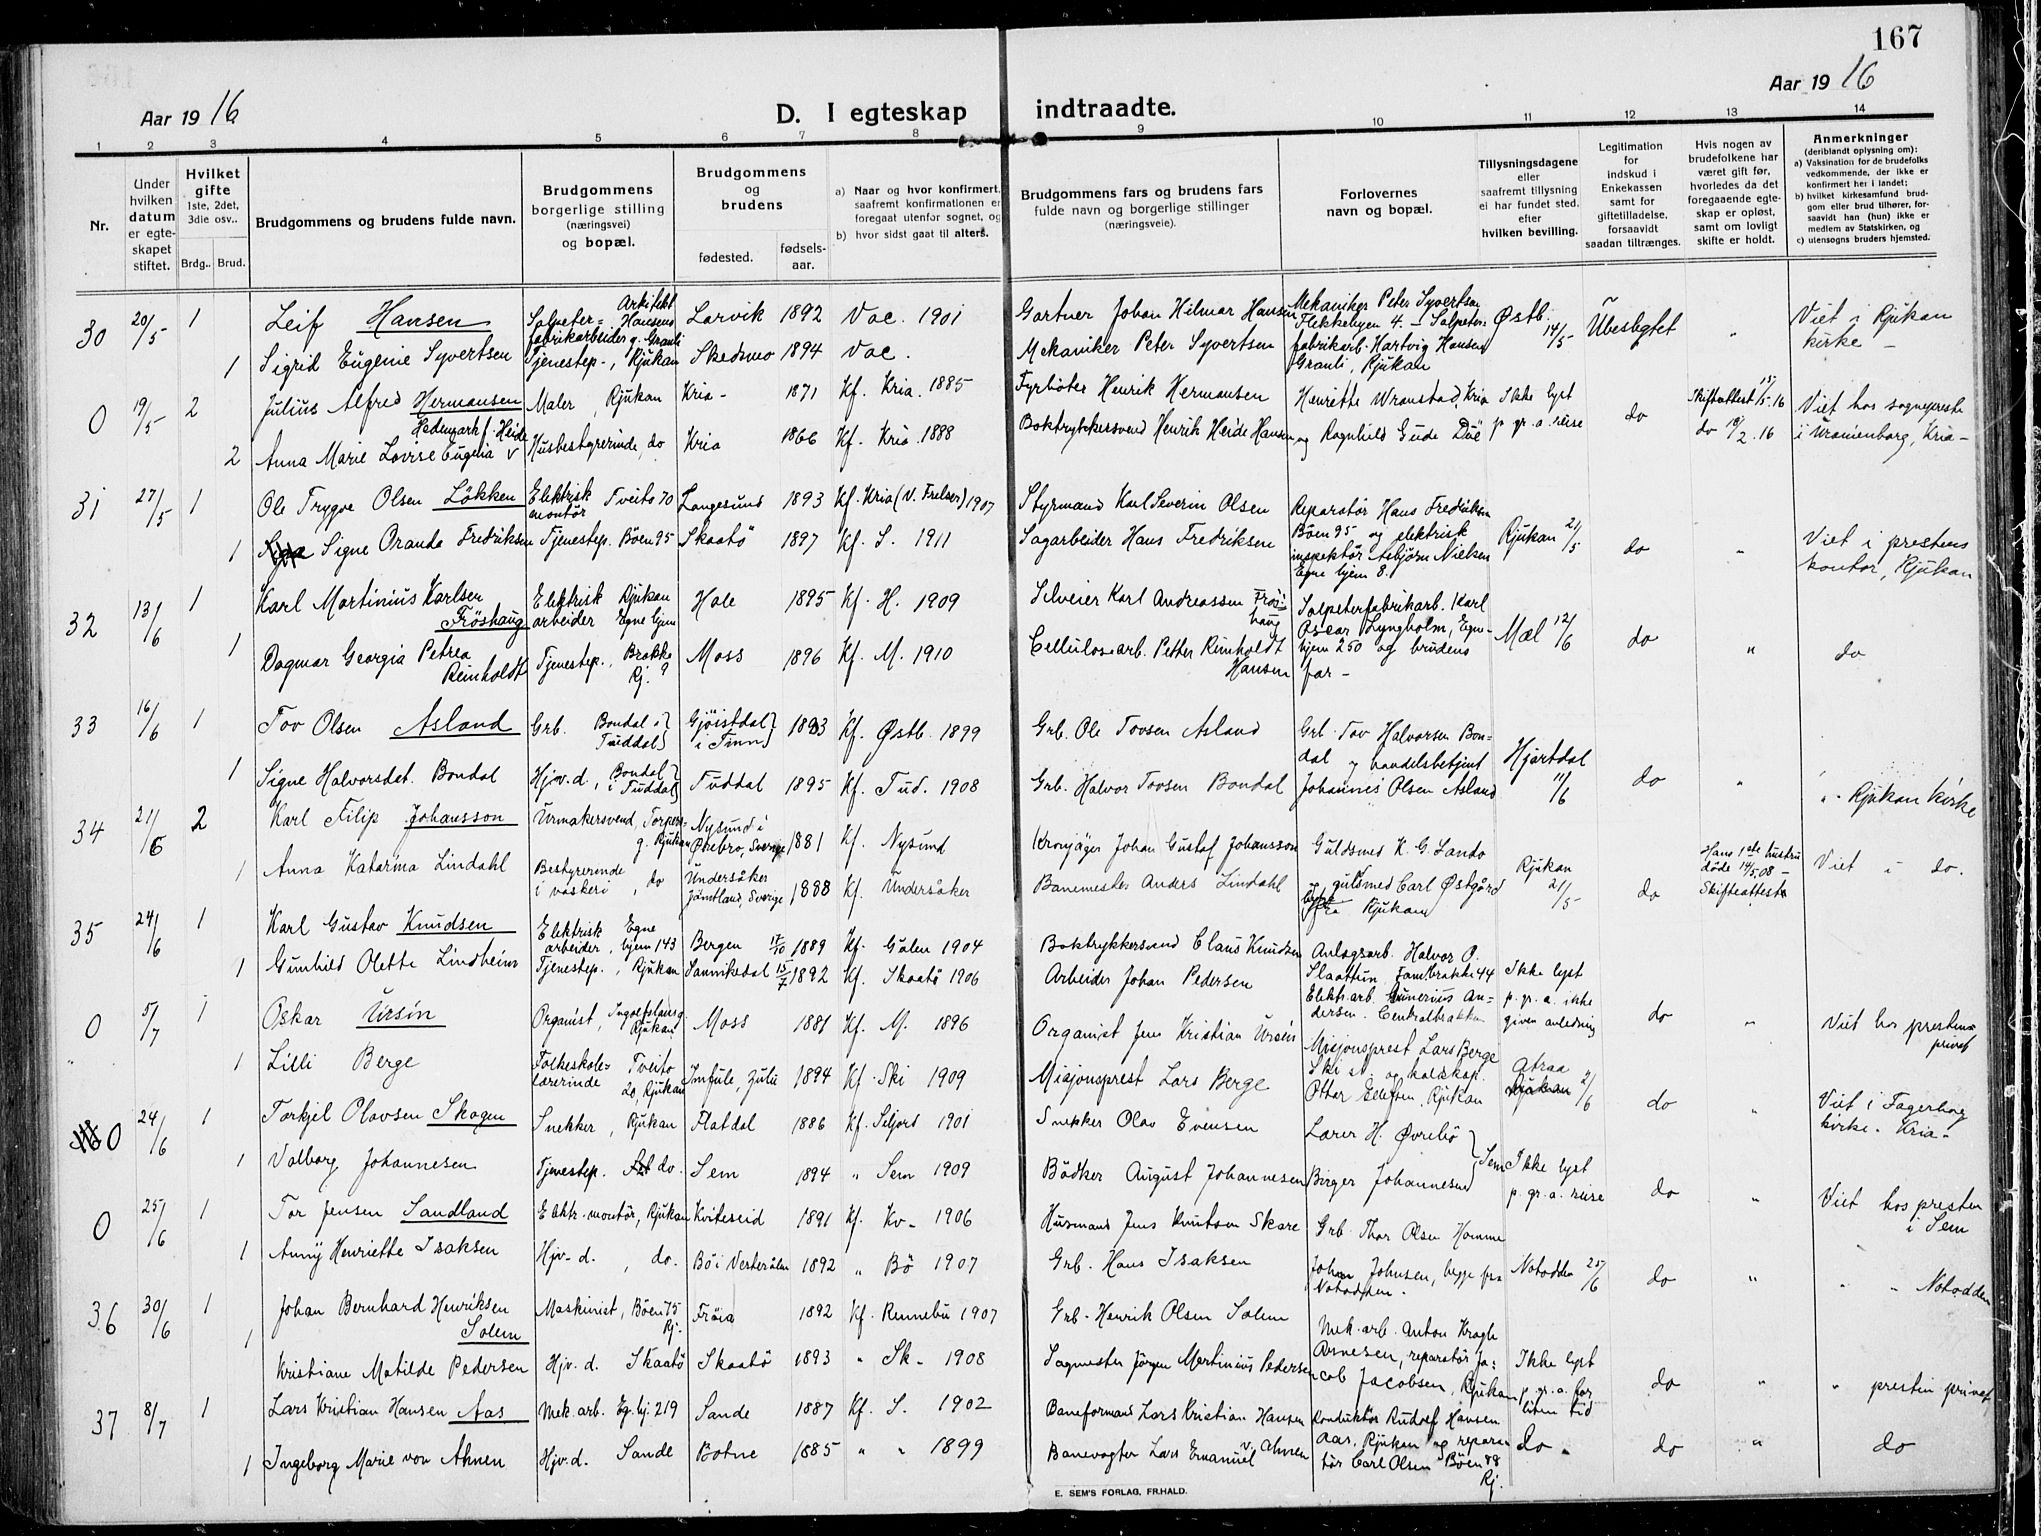 167
Aar 1916
Aar 1916
D. I egteskap indtraadte.
1 2 3 4 5 6 7 8 9 10 11 12 13 14
Nr.
Under hvilken datum er egteskapet stiftet.
Hvilket gifte 1ste, 2det, 3die osv..
Brdg.. Brud.
Brudgommens og brudens fulde navn.
Brudgommens borgerlige stilling (næringsvei) og bopæl.
Brudgommens og brudens
fødested. fødsels-aar.
a) Naar og hvor konfirmert, saafremt konfirmationen er foregaat utenfor sognet, og
b) hvor sidst gaat til alters.
Brudgommens fars og brudens fars fulde navn og borgerlige stillinger (næringsveie).
Forlovernes navn og bopæl.
Tillysningsdagene eller saafremt tillysning ei har fundet sted, efter hvilken bevilling.
Legitimation for indskud i Enkekassen samt for giftetilladelse, forsaavidt saadan tiltrænges.
Hvis nogen av brudefolkene har været gift før, hvorledes da det foregaaende egteskap er opløst, samt om lovligt skifte er holdt.
Anmerkninger (deriblandt oplysning om):
a) Vaksination for de brudefolks vedkommende, der ikke er konfirmert her i landet;
b) hvilket kirkesamfund brudgom eller brud tilhører, forsaavidt han (hun) ikke er medlem av Statskirken, og
c) utensogns bruders hjemsted.
30 20/5 1 Leif Hansen Salpeterfabrikarbeider Arkitekt Hansens g. Granli Larvik 1892 Vac. 1901 Gartner Johan Hilmar Hansen Mekaniker Peter Syvertsen Flekkebyen 4. – Salpeterfabrikarb. Hartvig Hansen Granli, Rjukan Østb. 14/5 Ubeslegtet " Viet i Rjukan kirke –
1 Sigrid Eugenie Syvertsen Tjenestep., Rjukan Skedsmo 1894 Vac. Mekaniker Peter Syvertsen
0 19/5 2 Julius Alfred Hermansen Maler, Rjukan Kria 1871 Kf. Kria. 1885 Fyrbøter Henrik Hermansen Henriette Wranstad, Kria Ikke lyst p. gr. a. reise do Skifteattest 15/5.16 Viet hos sognepresten i Uranienborg, Kria –
2 Anna Marie Lovise Eugenia v Hedemark f. Heide Husbestyrerinde, do Kria 1866 Kf. Kria. 1888 Boktrykkersvend Henrik Heide Hansen og Ragnhild Gude Døe do 19/2.16
31 27/5 1 Ole Trygve Olsen Løkken Elektrisk montør Tveito 70 Langesund 1893 Kf. Kria (V. Frelser) 1907 Styrmand Karl Severin Olsen Reparatør Hans Fredriksen Bøen 95 og elektrisk inspektør Asbjørn Nielsen Egne hjem 8. Rjukan 21/5 do " Viet i prestens kontor, Rjukan
1 Signe Oranda Fredriksen Tjenestep. Bøen 95 Skaatø 1897 Kf. S. 1911 Sagarbeider Hans Fredriksen
32 13/6 1 Karl Martinius Karlsen Frøshaug Elektrisk arbeider Rjukan Egne hjem Hole 1895 Kf. H. 1909 Karl Andreassen Frøshaug Salpeterfabrikarb. Karl Oscar Lyngholm, Egnehjem 250 og brudens far – Mæl 12/6 do " do
1 Dagmar Georgia Petrea Reinholdt Tjenestep., Brakke Rj. 9 Moss 1896 Kf. M. 1910 Cellulosearb. Petter Reinholdt Hansen
33 16/6 1 Tov Olsen Asland Grb. Bondal i Tuddal Gjøistdal i Tinn 1883 Kf. Østb. 1899 Grb. Ole Tovsen Asland Grb. Tov Halvorsen Bondal og handelsbetjent Johannes Olsen Asland Hjartdal 11/6 do " " Rjukan kirke
1 Signe Halvorsdat. Bondal Hjv. d., Bondal i Tuddal Tuddal 1895 Kf. Tud. 1908 Grb. Halvor Tovsen Bondal
34 21/6 2 Karl Filip Johansson Urmakersvend, g. Rjukan Nysund i Ørebro, Sverige 1881 Kf. Nysund Kronjäger Johan Gustaf Johansson Guldsmed K. G. Lando Rjukan 21/5 do Hans 1ste hustru døde 14/5.08 – Skifteattest Viet i do.
1 Anna Katarina Lindahl Bestyrerinde i vaskeri, do Undersåker Jämtland, Sverige 1888 Kf. Undersåker Banemester Anders Lindahl og guldsmed Carl Østgård begge fra Rjukan
35 24/6 1 Karl Gustav Knudsen Elektrisk arbeider, Egne hjem 143 Bergen 17/10 1889 Kf. Gulen 1904 Boktrykkersvend Claus Knudsen Anlægsarb. Halvor P. Slaattun, Fambrakke 44 Elektr. arb. Gunerius Andersen. Centralbrakken Ikke lyst p. gr. a. ikke given anledning do " Viet hos presten privat
1 Gunhild Olette Lindheim Tjenestep., Rjukan Sannikedal 15/7 1892 Kf. Skaatø 1906 Arbeider Johan Pedersen
0 5/7 1 Oskar Ursin Organist, Ingolfsland g. Rjukan Moss 1881 Kf. M. 1896 Organist Jens Kristian Ursin Misjonsprest Lars Berge Ski st. og Ottar Ellefsen, Rjukan Atraa Rjukan 2/6 do " Viet i Fagerborg kirke. Kria –
1 Lilli Berge Folkeskolelærerinde Tveito 20, Rjukan Imfule, Zulu 1894 Kf. Ski 1909 Misjonsprest Lars Berge
0 24/6 1 Torkjel Olavsen Skogen Snekker, Rjukan Flatdal 1886 Kf. Seljord 1901 Snekker Olav Evensen Lærer H. Øvrebø Sem Ikke lyst p. gr. a. reise do " Viet hos presten i Sem
1 Valborg Johannesen Tjenestep. do. Sem 1894 " Sem 1909 Bødker August Johannesen Birger Johannesen
0 25/6 1 Tor Jensen Sandland Elektr. montør, Rjukan Kviteseid 1891 Kf. Kv. 1906 Husmand Jens Knutsen Skare Grb. Thor Olsen Homme Notodden 25/6 do " " " Notodden
1 Anny Henriette Isaksen Hjv. d., do. Bø i Vesterålen 1892 " Bø 1907 Grb. Hans Isaksen Johan Johnsen, begge fra Notodden.
36 30/6 1 Johan Bernhard Henriksen Solem Maskinist, Bøen 75 Rj. Frøia 1892 Kf. Rennebu 1907 Grb. Henrik Olsen Solem Mek. arb. Anton Kragh Arnesen, reparatør Jacob Jacobsen, Rjukan Ikke lyst p. gr. a. for liten tid do " " presten privat
1 Kristiane Matilde Pedersen Hjv. d. Skaatø Skaatø 1893 " Sk. 1908 Sagmester Jørgen Martinius Pedersen
37 8/7 1 Lars Kristian Hansen Aas Mek. arb. Eg. hj. 219 Sande 1887 Kf. S. 1902 Baneformand Lars Kristian Hansen Konduktør Rudolf Hansen Aas, Rjukan og reparatør Carl Olsen Bøen 88 Rj. do do " do
1 Ingeborg Marie von Ahnen Hjv. d. Sande Botne 1885 " " 1899 Banevogter Lars Emanuel v. Ahnen
E. SEM'S FORLAG, FR.HALD.